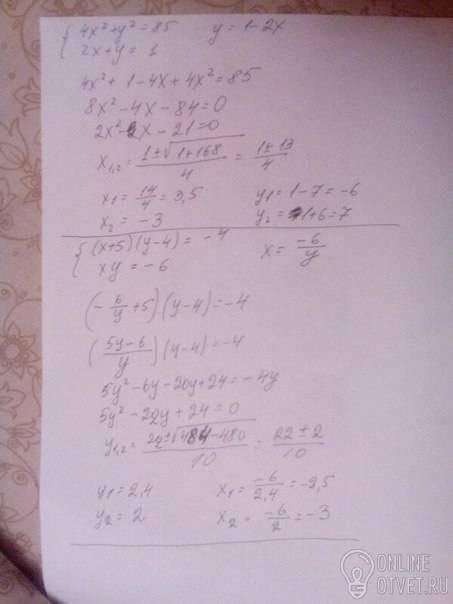 { 4x²+y²=85   y=1-2x
2x+y=1
4x²+1-4x+4x²=85
8x²-4x-84=0
2x²-x-21=0
x₁,₂ = (1±√(1+168))/4 = (1±13)/4
x₁ = 14/4 = 3,5   y₁=1-7=-6
x₂ = -3   y₂ = 1+6=7
{ (x+5)(y-4)=-4   x = -6/y
xy=-6
(-6/y+5)(y-4)=-4
((5y-6)/y)(y-4)=-4
5y²-6y-20y+24=-4y
5y²-22y+24=0
y₁,₂ = (22±√(484-480))/10 = (22±2)/10
y₁=2,4   x₁ = -6/2,4 = -2,5
y₂=2   x₂ = -6/2 = -3
ONLINE
OTVET.RU